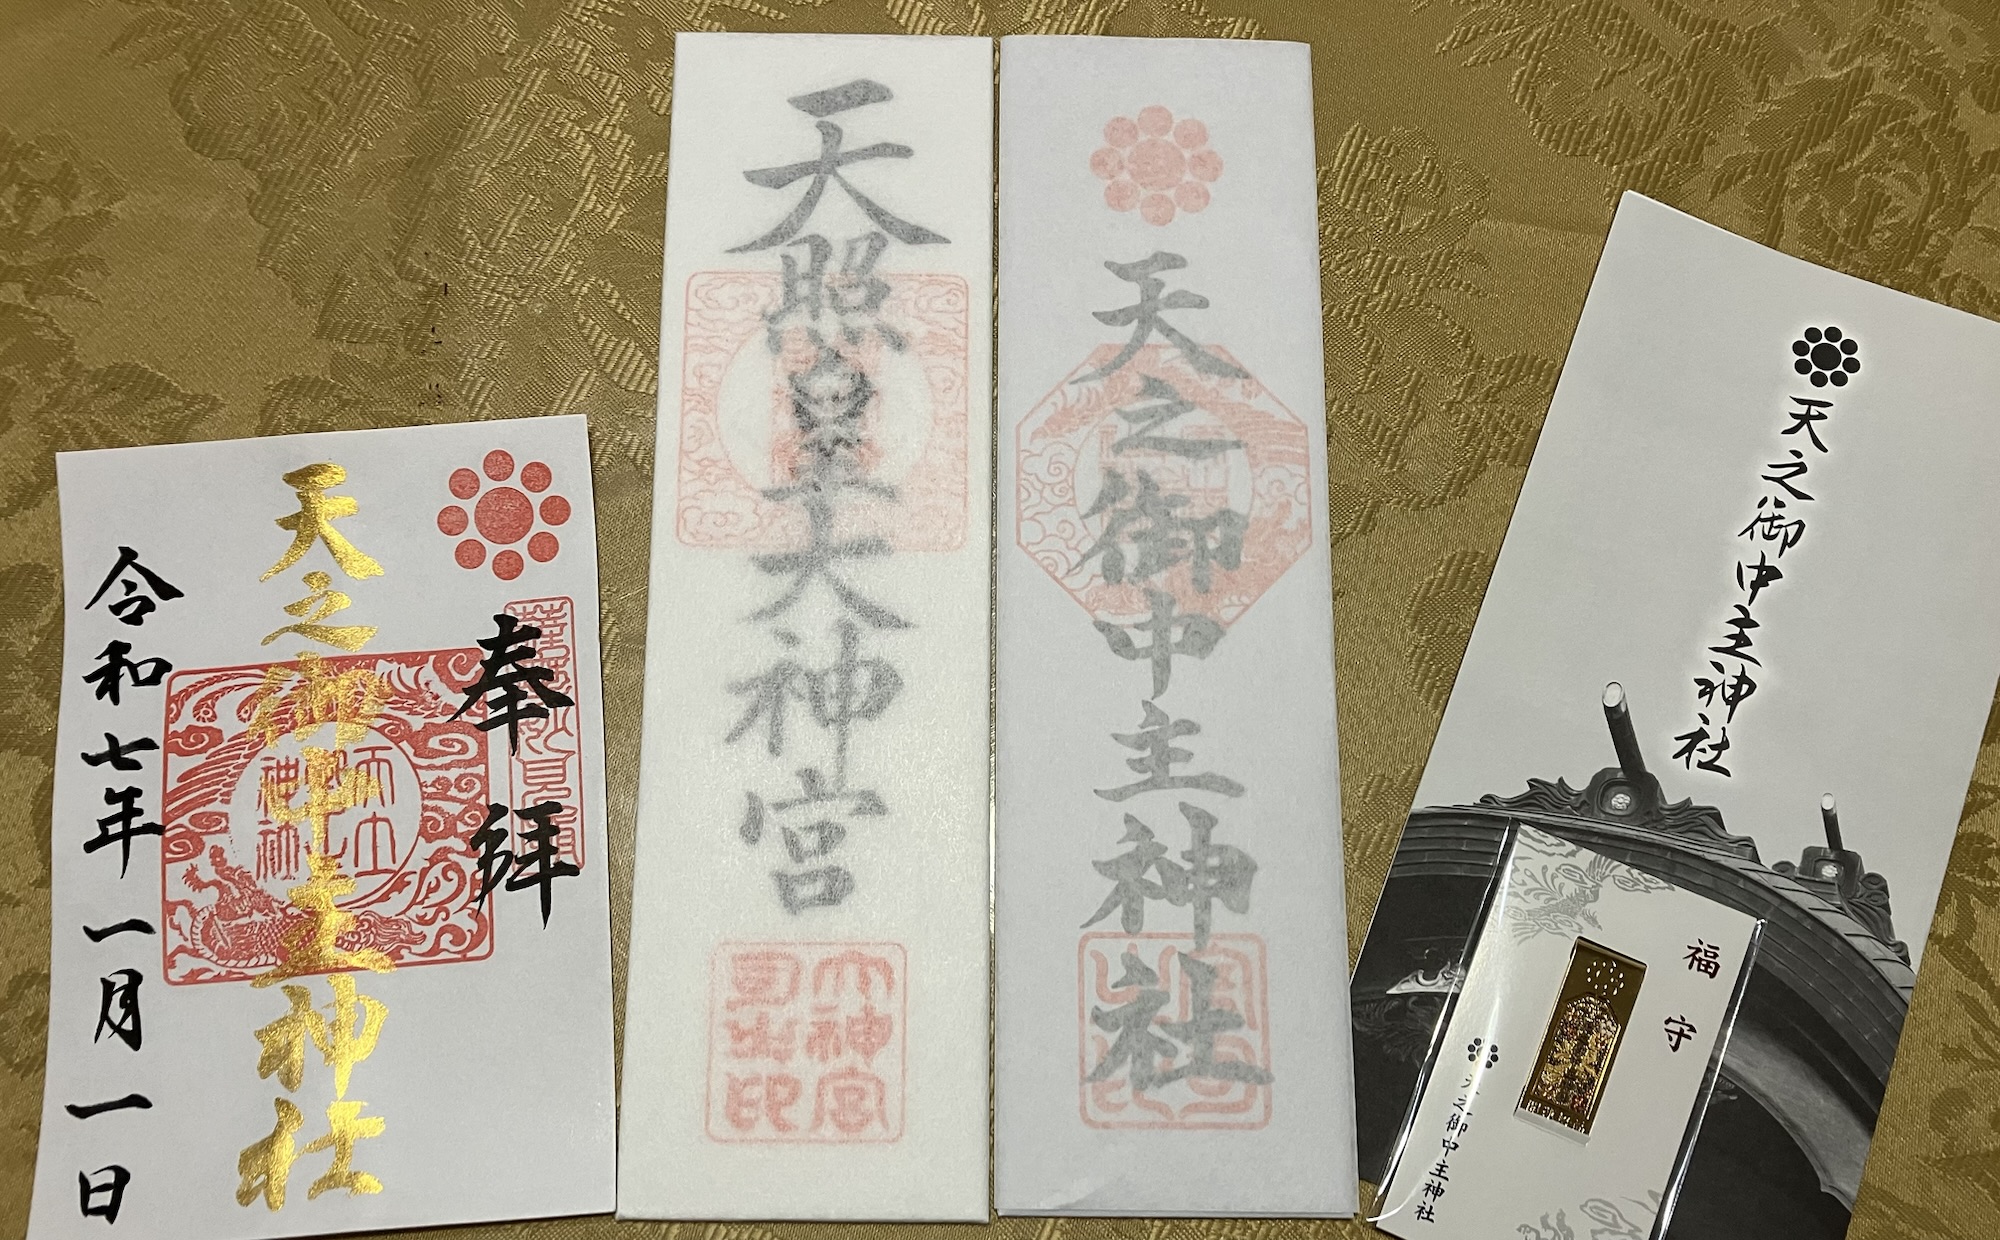 奉拝
天之御中主神社
令和七年一月一日
天照皇大神宮
大神宮
天之御中主神社
天之御中主神社
福守
天之御中主神社